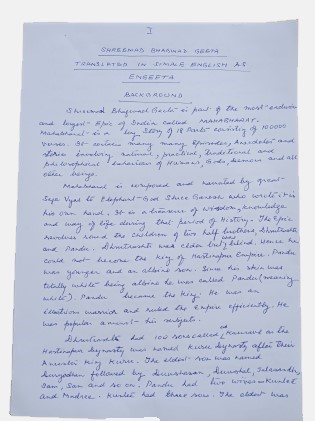 3
SHREEMAD BHAGWAD GEETA
TRANSLATED IN SIMPLE ENGLISH AS
ENGEETA
BACKGROUND
Shreemad Bhagwad Geeta is part of the most ancient
and largest Epic of India called MAHABHARAT.
Mahabharat is a big Story of 18 Parts consisting of 100000
verses. It contains many many Episodes, Anecdotes and
stories involving natural, practical, traditional and
philosophical behaviour of Humans, Gods, Demons and all
other beings.
Mahabharat is composed and narrated by great
Sage Vyas to Elephant-God Shree Ganesh who wrote it in
his own hand. It is a treasure of wisdom, knowledge
and way of life during that period of History. The Epic
revolves round the children of two half brothers, Dhrutrashtra
and Pandu. Dhrutrashtra was elder but blind. Hence he
could not become the King of Hastinapur Empire. Pandu
was younger and an albino son. Since his skin was
totally white being albino he was called Pandu (meaning
white). Pandu became the King. He was an
warrior and ruled the Empire efficiently. He
was popular amongst his subjects.
Dhrutrashtra had 100 sons called Kauravs as the
Hastinapur Dynasty was named Kuru Dynasty after their
ancestor king Kuru. The eldest son was named
Duryodhan followed by Dushasan,
and so on. Pandu had two wives - Kunti
and Madree. Kunti had three sons. The eldest was